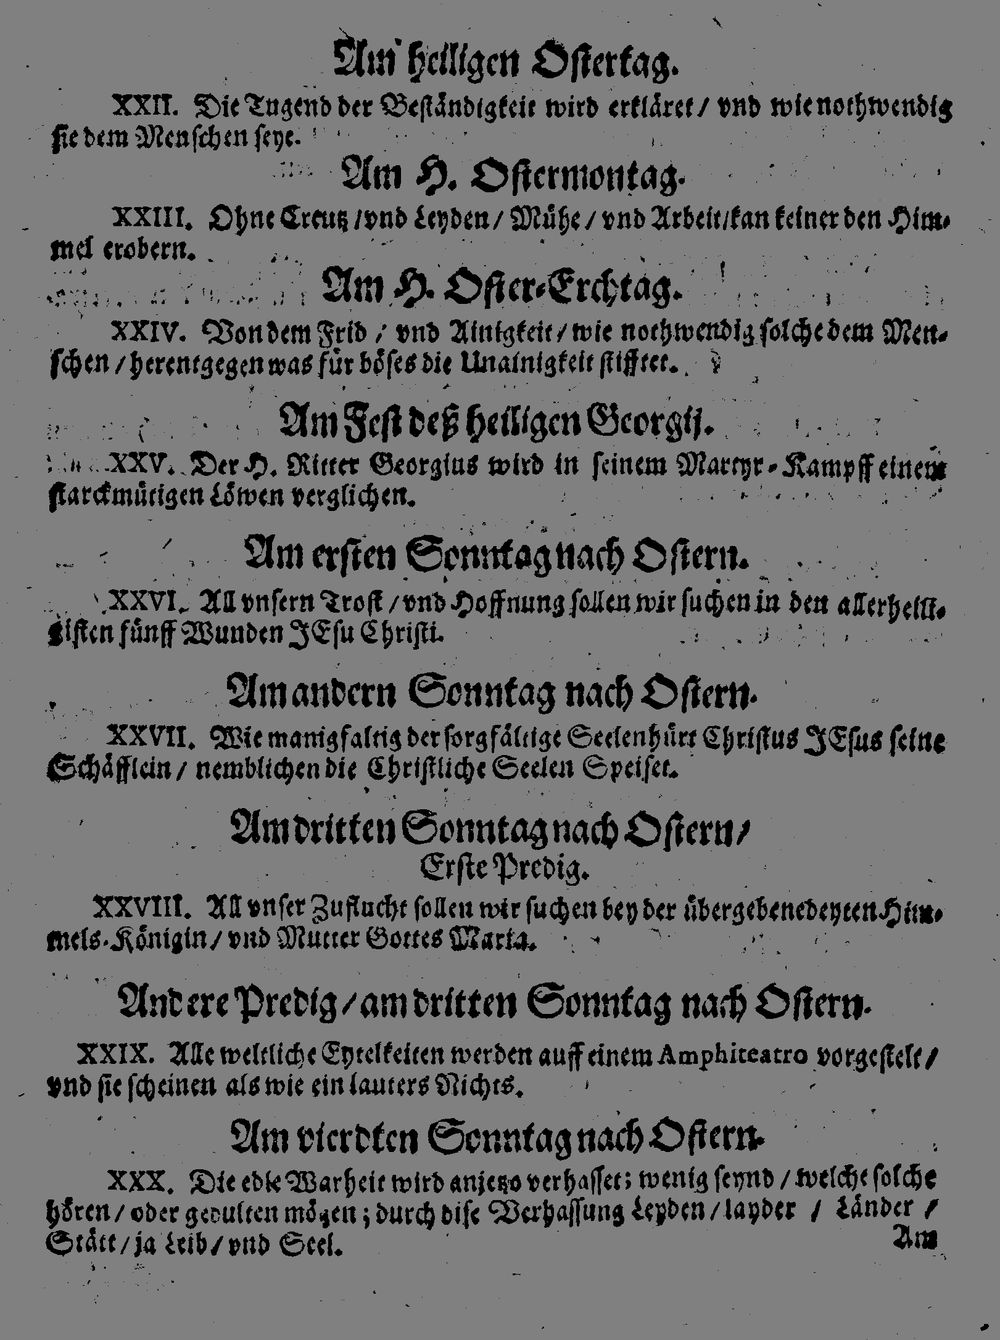 Am heiligen Ostertag.
XXII. Die Tugend der Beständigkeit wird erkläret / vnd wie nothwendig
sie dem Menschen seye.
Am H. Ostermontag.
XXIII. Ohne Creutz / vnd Leyden / Mühe / vnd Arbeit / kan keiner den Him-
mel erobern.
Am H. Oster-Erchtag.
XXIV. Von dem Frid / vnd Ainigkeit / wie nothwendig solche dem Men-
schen / herentgegen was für böses die Unainigkeit stifftet.
Am Fest deß heiligen Georgij.
XXV. Der H. Ritter Georgius wird in seinem Martyr-Kampff einem
starckmütigen Löwen verglichen.
Am ersten Sonntag nach Ostern.
XXVI. All vnsern Trost / vnd Hoffnung sollen wir suchen in den allerheili-
gisten fünff Wunden JEsu Christi.
Am andern Sonntag nach Ostern.
XXVII. Wie manigfaltig der sorgfältige Seelenhürt Christus JEsus seine
Schäfflein / nemblichen die Christliche Seelen Speiset.
Am dritten Sonntag nach Ostern /
Erste Predig.
XXVIII. All vnser Zuflucht sollen wir suchen bey der übergebenedeyten Him-
mels-Königin / vnd Mutter Gottes Maria.
Andere Predig / am dritten Sonntag nach Ostern.
XXIX. Alle weltliche Eytelkeiten werden auff einem Amphiteatro vorgestelt /
vnd sie scheinen als wie ein lauters Nichts.
Am vierdten Sonntag nach Ostern.
XXX. Die edle Warheit wird anjetzo verhasset; wenig seynd / welche solche
hören / oder gedulten mögen; durch dise Verhassung Leyden / layder / Länder /
Stätt / ja Leib / vnd Seel.
Am